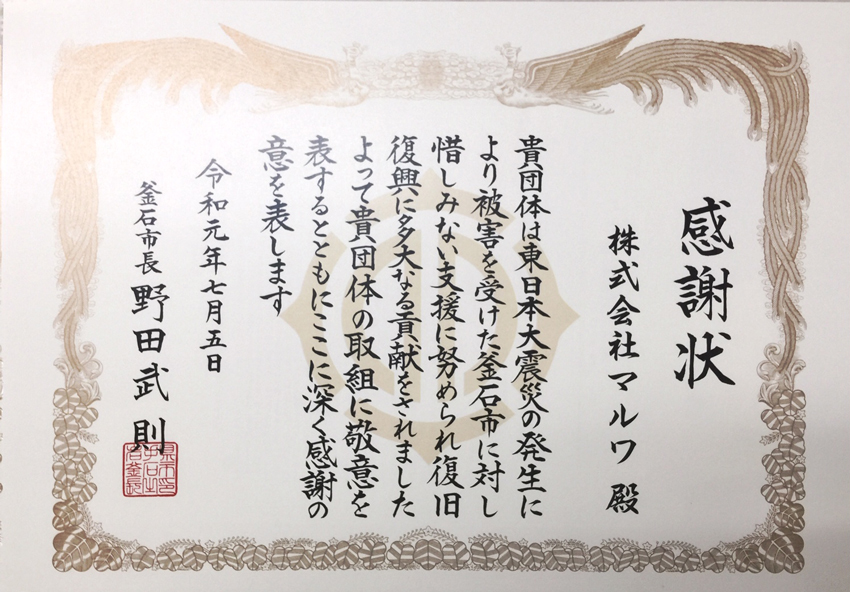 感謝状
株式会社マルワ 殿
貴団体は東日本大震災の発生に
より被害を受けた釜石市に対し
惜しみない支援に努められ復旧
復興に多大なる貢献をされました
よって貴団体の取組に敬意を
表するとともにここに深く感謝の
意を表します
令和元年七月五日
釜石市長 野田武則